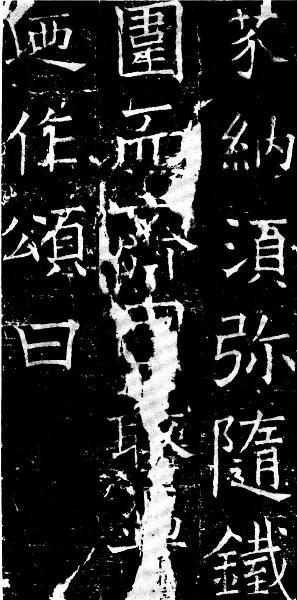 芥納須弥隨鐵
圍而聊
迺作頌曰